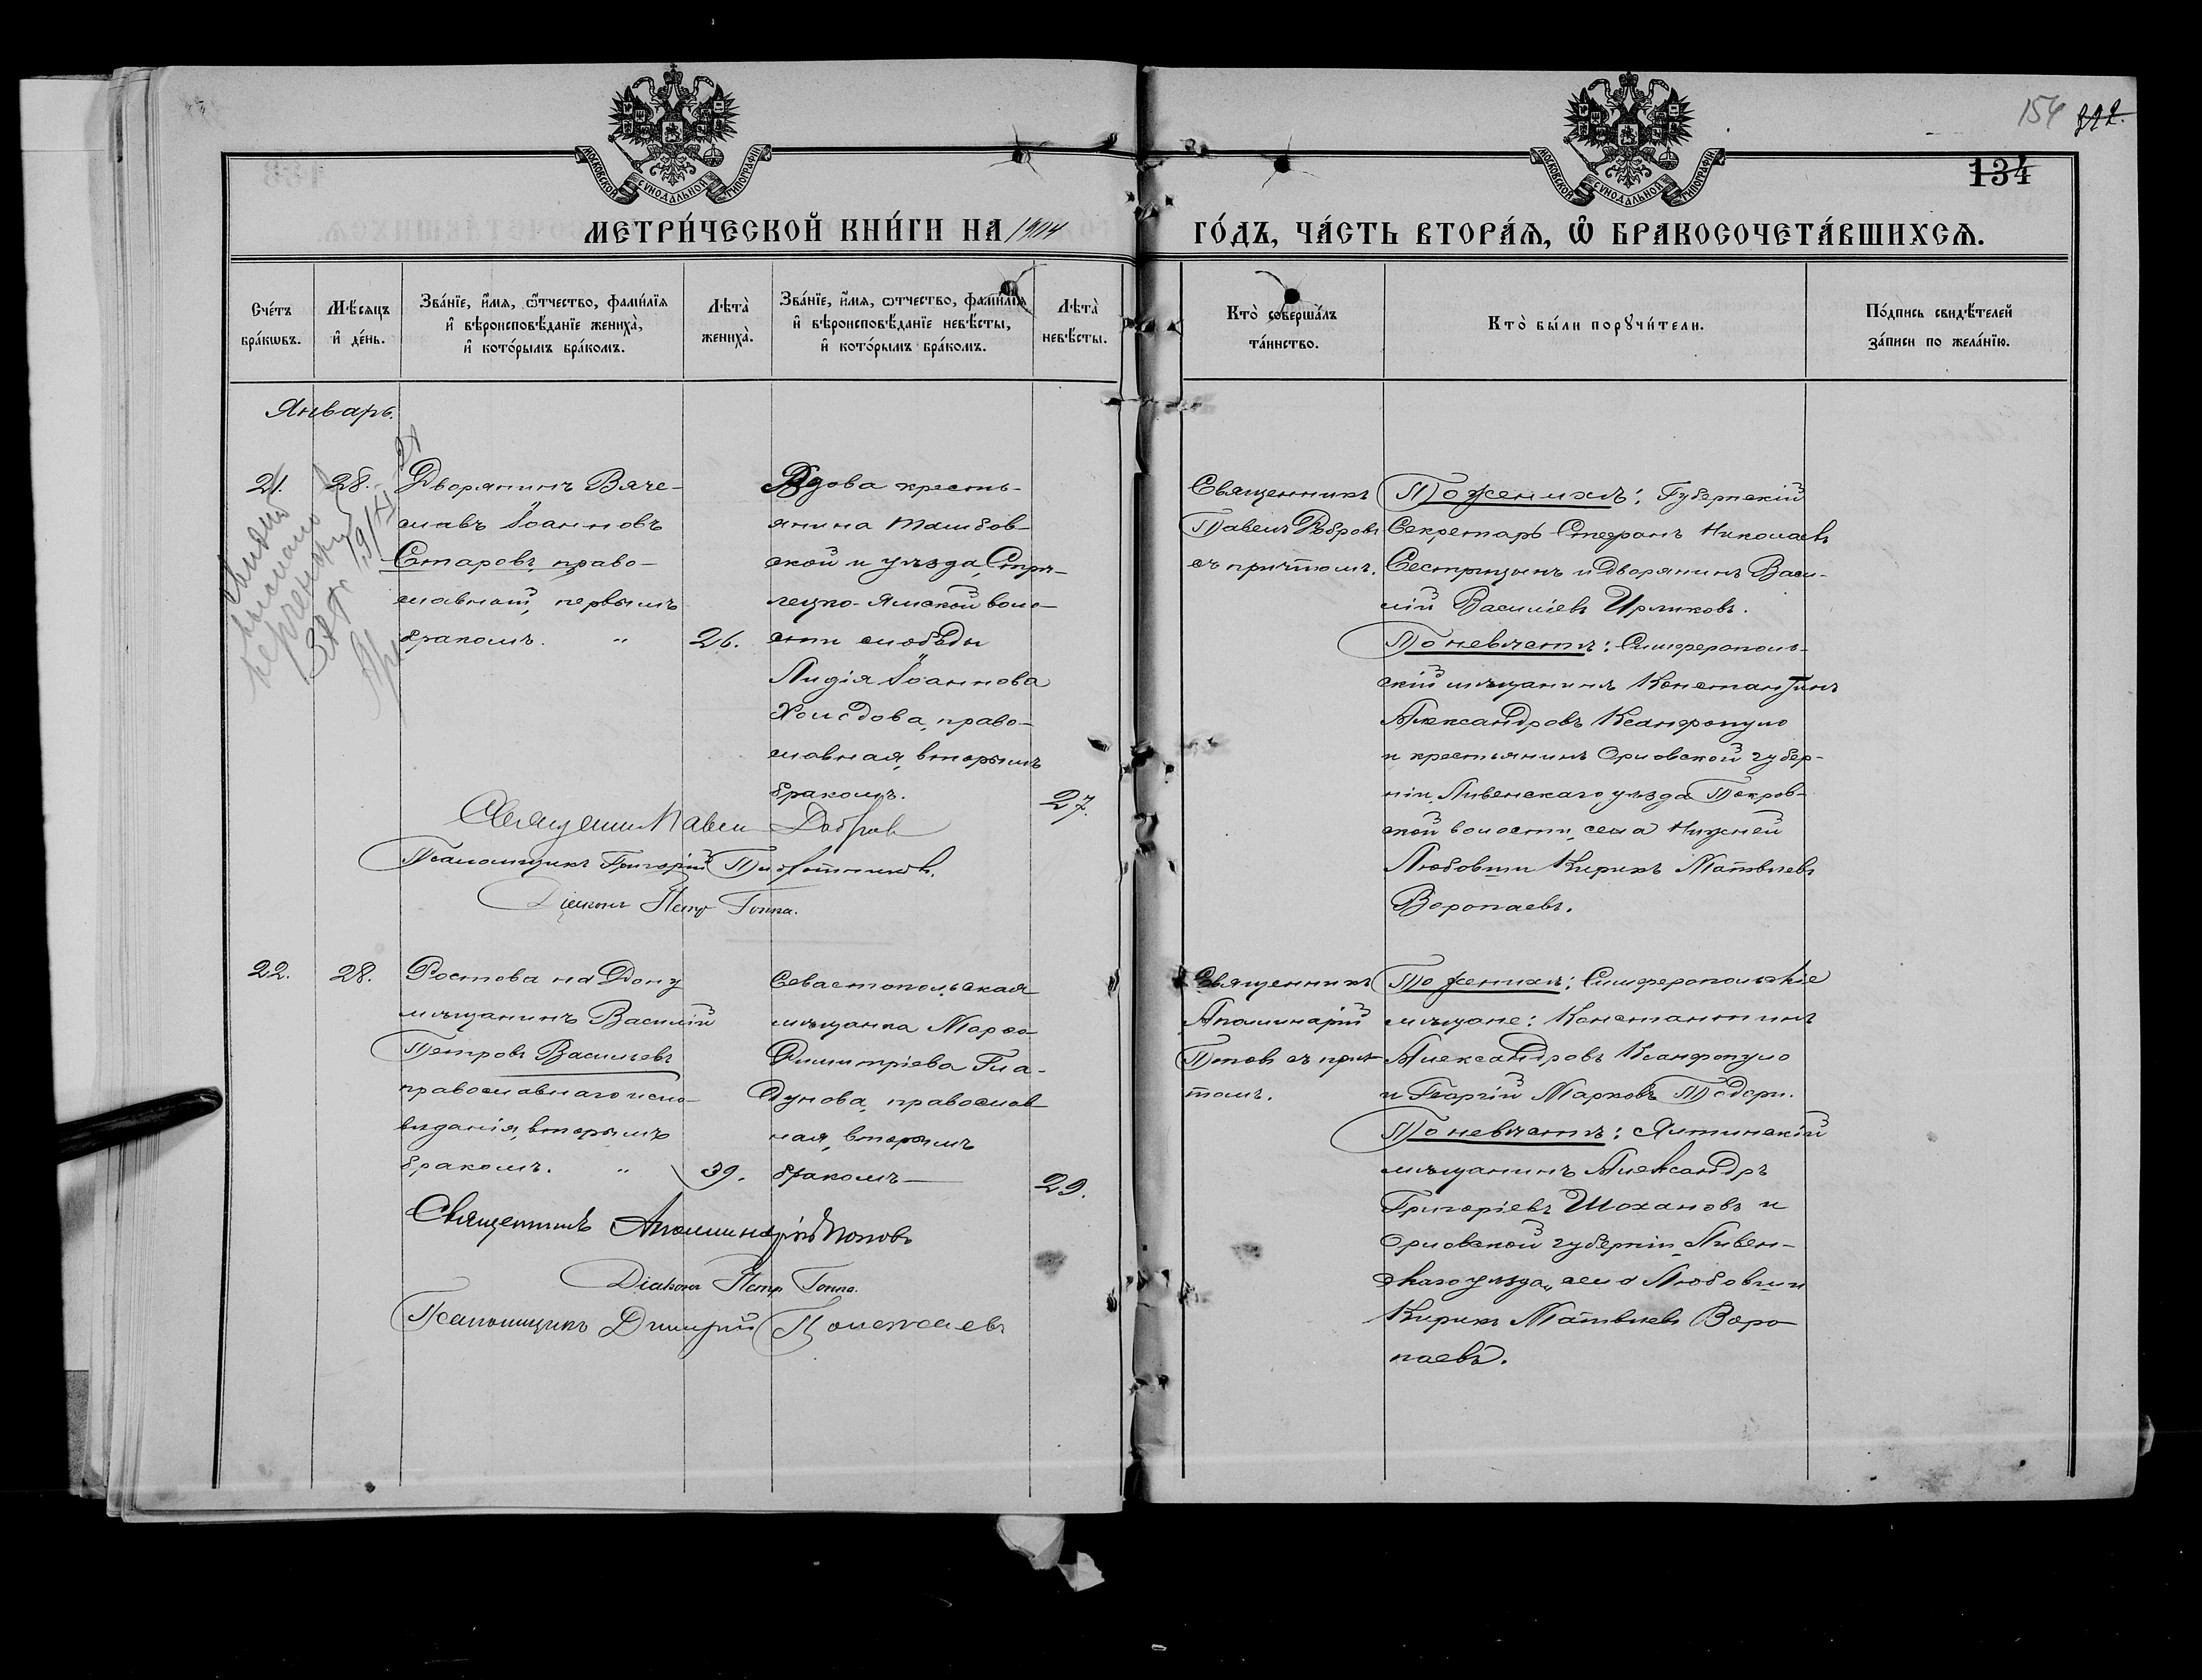 154
134
МОСКОВСКОЙ СѴНОДАЛЬНОЙ ТИПОГРАФІИ
МОСКОВСКОЙ СѴНОДАЛЬНОЙ ТИПОГРАФІИ
МЕТРИ́ЧЕСКОЙ КНИ́ГИ НА 1904 ГО́ДЪ, ЧА́СТЬ ВТОРА́Ѧ, Ѽ БРАКОСОЧЕТА́ВШИХСѦ.
Сче́тъ бра́кѡвъ.
Мѣ́сѧцъ и҆ де́нь.
Зва́нїе, и҆́мѧ, ѻ҆́тчество, фами́лїѧ и҆ вѣроисповѣ́данїе жениха̀, и҆ кото́рымъ бра́комъ.
Лѣта̀ жениха̀.
Зва́нїе, и҆́мѧ, ѻтчество, фами́лїѧ и҆ вѣроисповѣ́данїе невѣ́сты, и҆ кото́рымъ бра́комъ.
Лѣта̀ невѣ́сты.
Кто̀ соверша́лъ та́инство.
Кто̀ бы́ли порꙋчи́тели.
По́дпись свидѣ́телей за́писи по жела́нїю.
Январь.
21.
28.
Дворянинъ Вяче-
славъ Іоанновъ
Старовъ, право-
славный, первымъ
бракомъ. "
26.
Вдова кресть-
янина Тамбов-
ской и уѣзда, Стрѣ-
лецко-Ямской воло-
сти слободы
Лидія Іоаннова
православная, вторымъ
бракомъ.
27.
Священникъ
Павелъ Добровъ
съ причтомъ.
По женихѣ: Губернскій
Секретарь Стефанъ Николаевъ
Сестрицынъ и дворянинъ Васи-
лій Василіевъ Ирликовъ.
По невѣстѣ: Симферополь-
скій мѣщанинъ Константинъ
Александровъ Ксанфопуло
и крестьянинъ Орловской губер-
ніи, Ливенскаго уѣзда Покров-
ской волости, села Нижней
Любовши Кирикъ Матвѣевъ
Воропаевъ.
Священникъ Павелъ Добровъ
Псаломщикъ Григорій Плотниковъ.
Діаконъ Петръ Гоппа.
22.
28.
Ростова на Дону
мѣщанинъ Василій
Петровъ Васильевъ
православнаго испо-
вѣданія, вторымъ
бракомъ. "
39.
Севастопольская
мѣщанка Марѳа
Димитріева Гла-
дунова, православ
ная, вторымъ
бракомъ
29.
Священникъ
Аполинарій
Поповъ съ прич-
томъ.
По женихѣ: Симферопольскіе
мѣщане: Константинъ
Александровъ Ксанфопуло
и Георгій Марковъ
По невѣстѣ: Ялтинскій
мѣщанинъ Александръ
Григоріевъ Шохановъ и
Орловской губерніи, Ливен-
скаго уѣзда, села Любовши
Кирикъ Матвѣевъ Воро
паевъ.
Священникъ Аполлинарій Поповъ
Діаконъ Петръ Гоппа.
Псаломщикъ Димитрій Полежаевъ